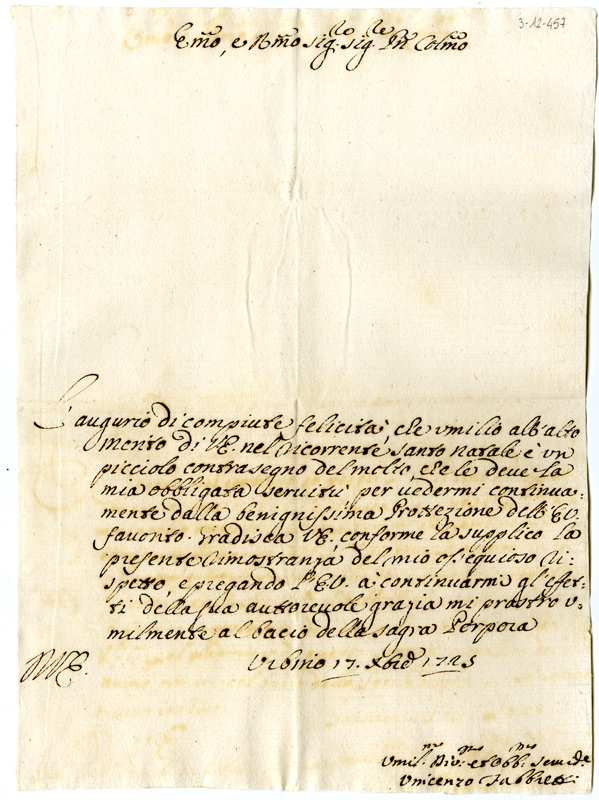 3-12-457
Emo, e Rmo Sig.re Sig.re Prñ Colmo
L'augurio di compiute felicità, che umilio all'alto
merito di V.E. nel ricorrente Santo Natale è un
picciolo contrasegno del molto, che le deve la
mia obbligata servitù per vedermi continua=
mente dalla benignissima Protezzione dell'E.V.
favorito. Gradisca V.E. conforme la supplico la
presente dimostranza del mio ossequioso ri=
spetto, e pregando l'E.V. a continuarmi gl'effet=
ti della sua auttorevole grazia mi prostro u=
milmente al bacio della Sagra Porpora
Urbino 17. Xbre 1725
Umil.mo Div.mo et Obb.mo Serv.re
Vincenzo Fabbretti